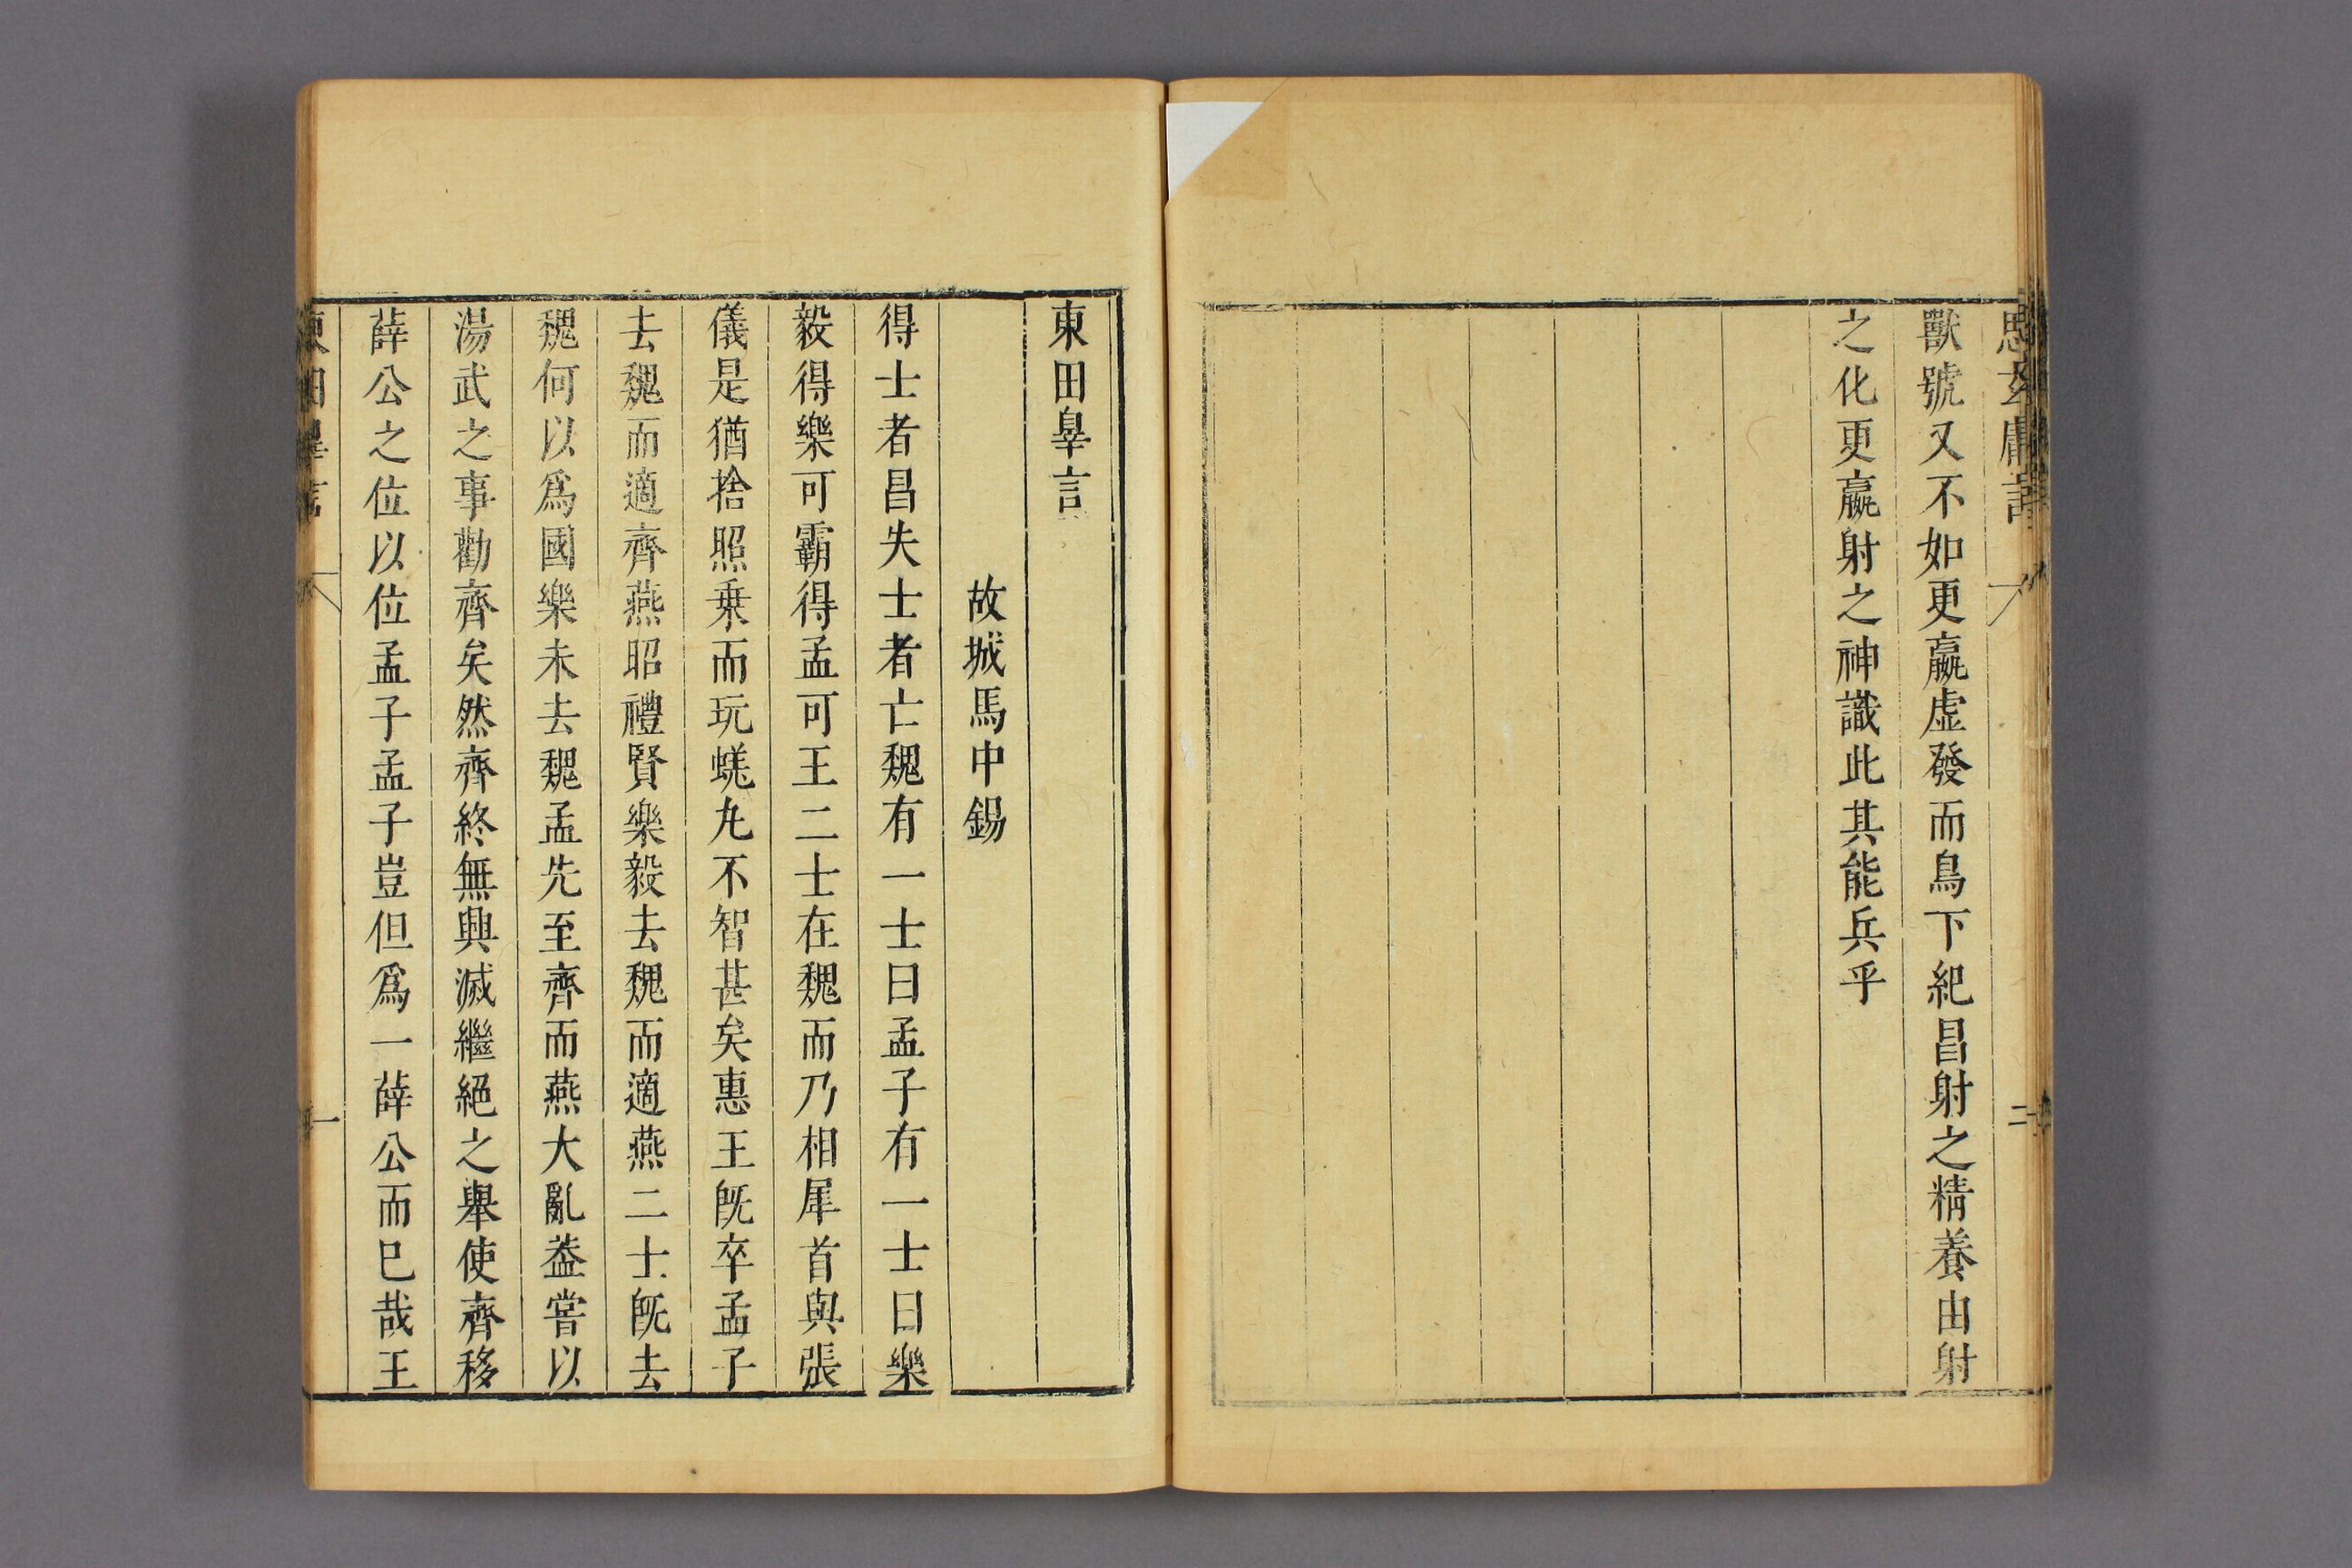 思玄庸言
二
獸號又不如更嬴虛發而鳥下紀昌射之精養由射
之化更嬴射之神識此其能兵乎
東田皋言
故城馬中錫
得士者昌失士者亡魏有一士曰孟子有一士曰樂
毅得樂可霸得孟可王二士在魏而乃相犀首與張
儀是猶捨照乗而玩蜣丸不智甚矣惠王旣卒孟子
去魏而適齊燕昭禮賢樂毅去魏而適燕二士旣去
魏何以爲國樂未去魏孟先至齊而燕大亂葢嘗以
湯武之事勸齊矣然齊終無興滅繼絕之舉使齊移
薛公之位以位孟子孟子豈但爲一薛公而已哉王
東田皋言
一